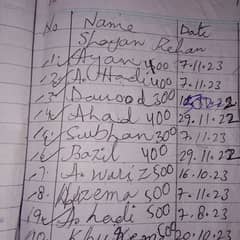 No. Name Date
Shayan Rehan
11. Ayan 400 7.11.23
12. A. Hadi 400 7.11.23
13. Dawood 300
14. Ahad 400 29.11.22
15. Subhan 300 7.11.23
16. Bazil 400 29.11.22
17. A. wariz 500 16.10.23
18. Uzema 500 7.11.23
19. A. hadi 500 7.8.23
500 20.10.23